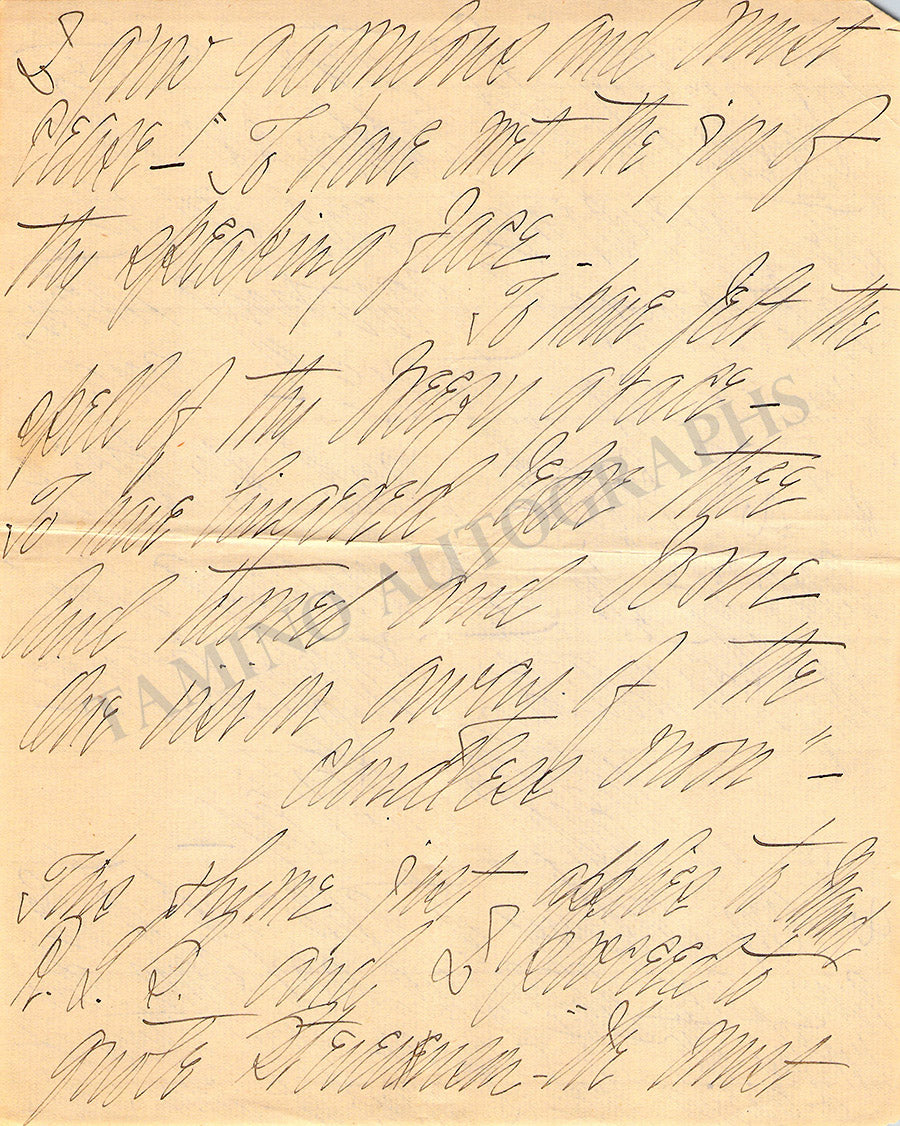 I grow garrulous and must
cease — "To have met the joy of
thy speaking face —
To have felt the
spell of thy breezy grace —
To have lingered before thee
and turned and borne
one vision away of the
cloudless morn" —
This rhyme just applies to
R. L. S. and I proceed to
quote Stevenson — "We must
TAMINO AUTOGRAPHS